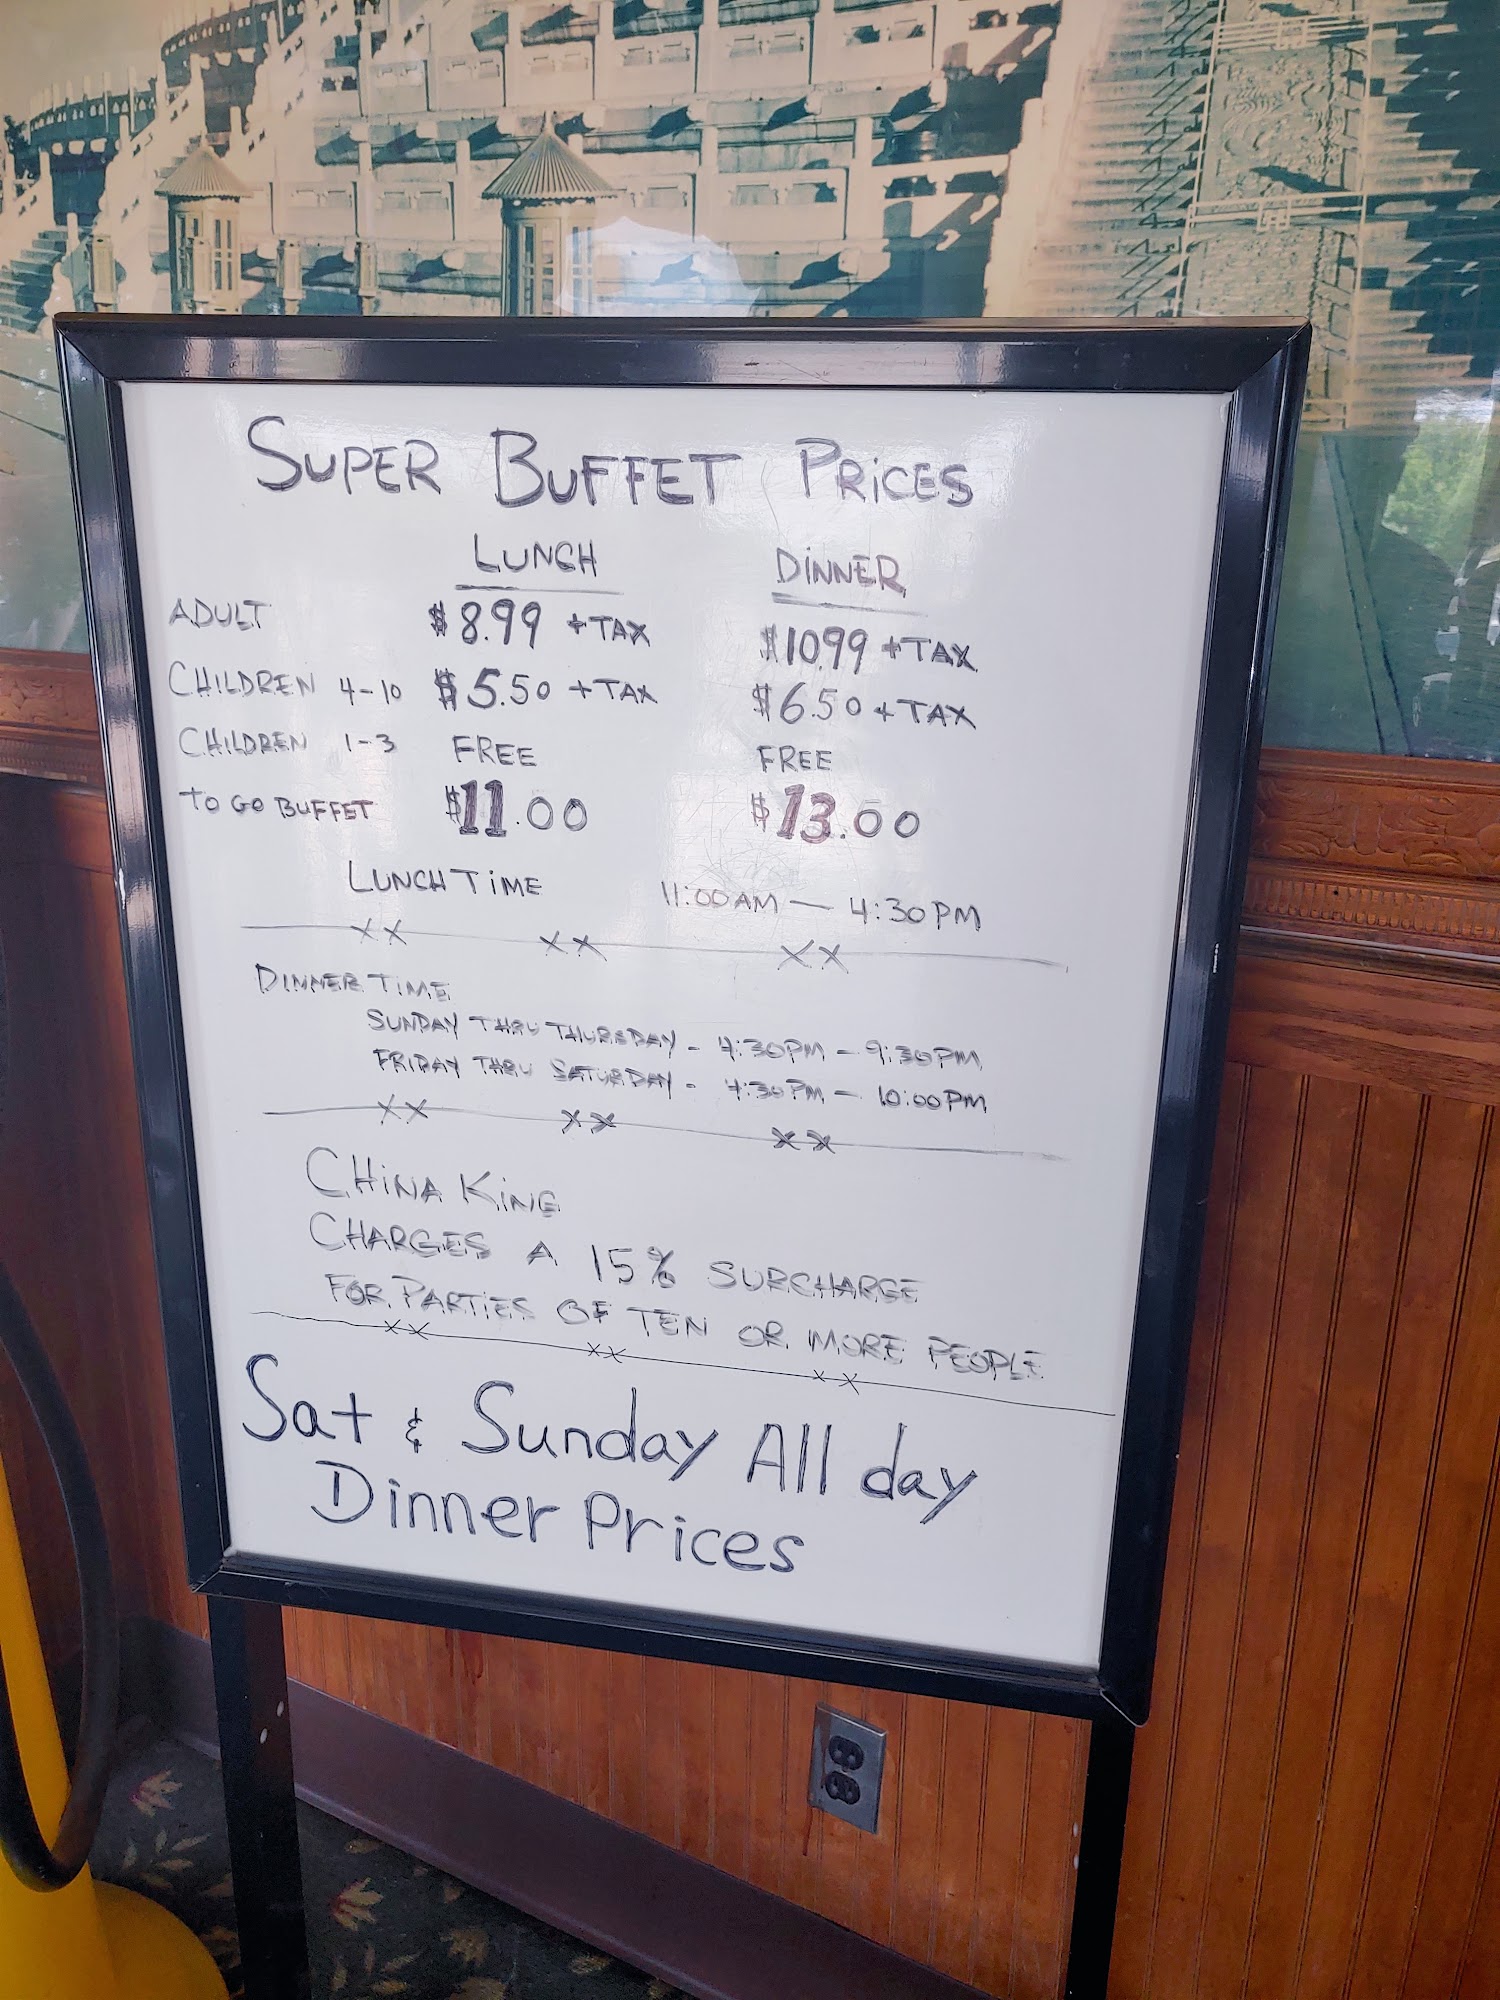 SUPER BUFFET PRICES
LUNCH DINNER
ADULT $8.99 + TAX $10.99 + TAX
CHILDREN 4-10 $5.50 + TAX $6.50 + TAX
CHILDREN 1-3 FREE FREE
TO GO BUFFET $11.00 $13.00
LUNCH TIME 11:00AM — 4:30PM
DINNER TIME
SUNDAY THRU THURSDAY - 4:30PM - 9:30PM
FRIDAY THRU SATURDAY - 4:30PM - 10:00PM
CHINA KING
CHARGES A 15% SURCHARGE
FOR PARTIES OF TEN OR MORE PEOPLE
Sat & Sunday All day
Dinner Prices